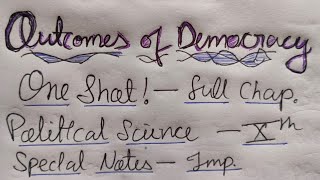 Outcomes of Democracy
One Shot! - Full Chap.
Political Science - Xth
Special Notes - Imp.